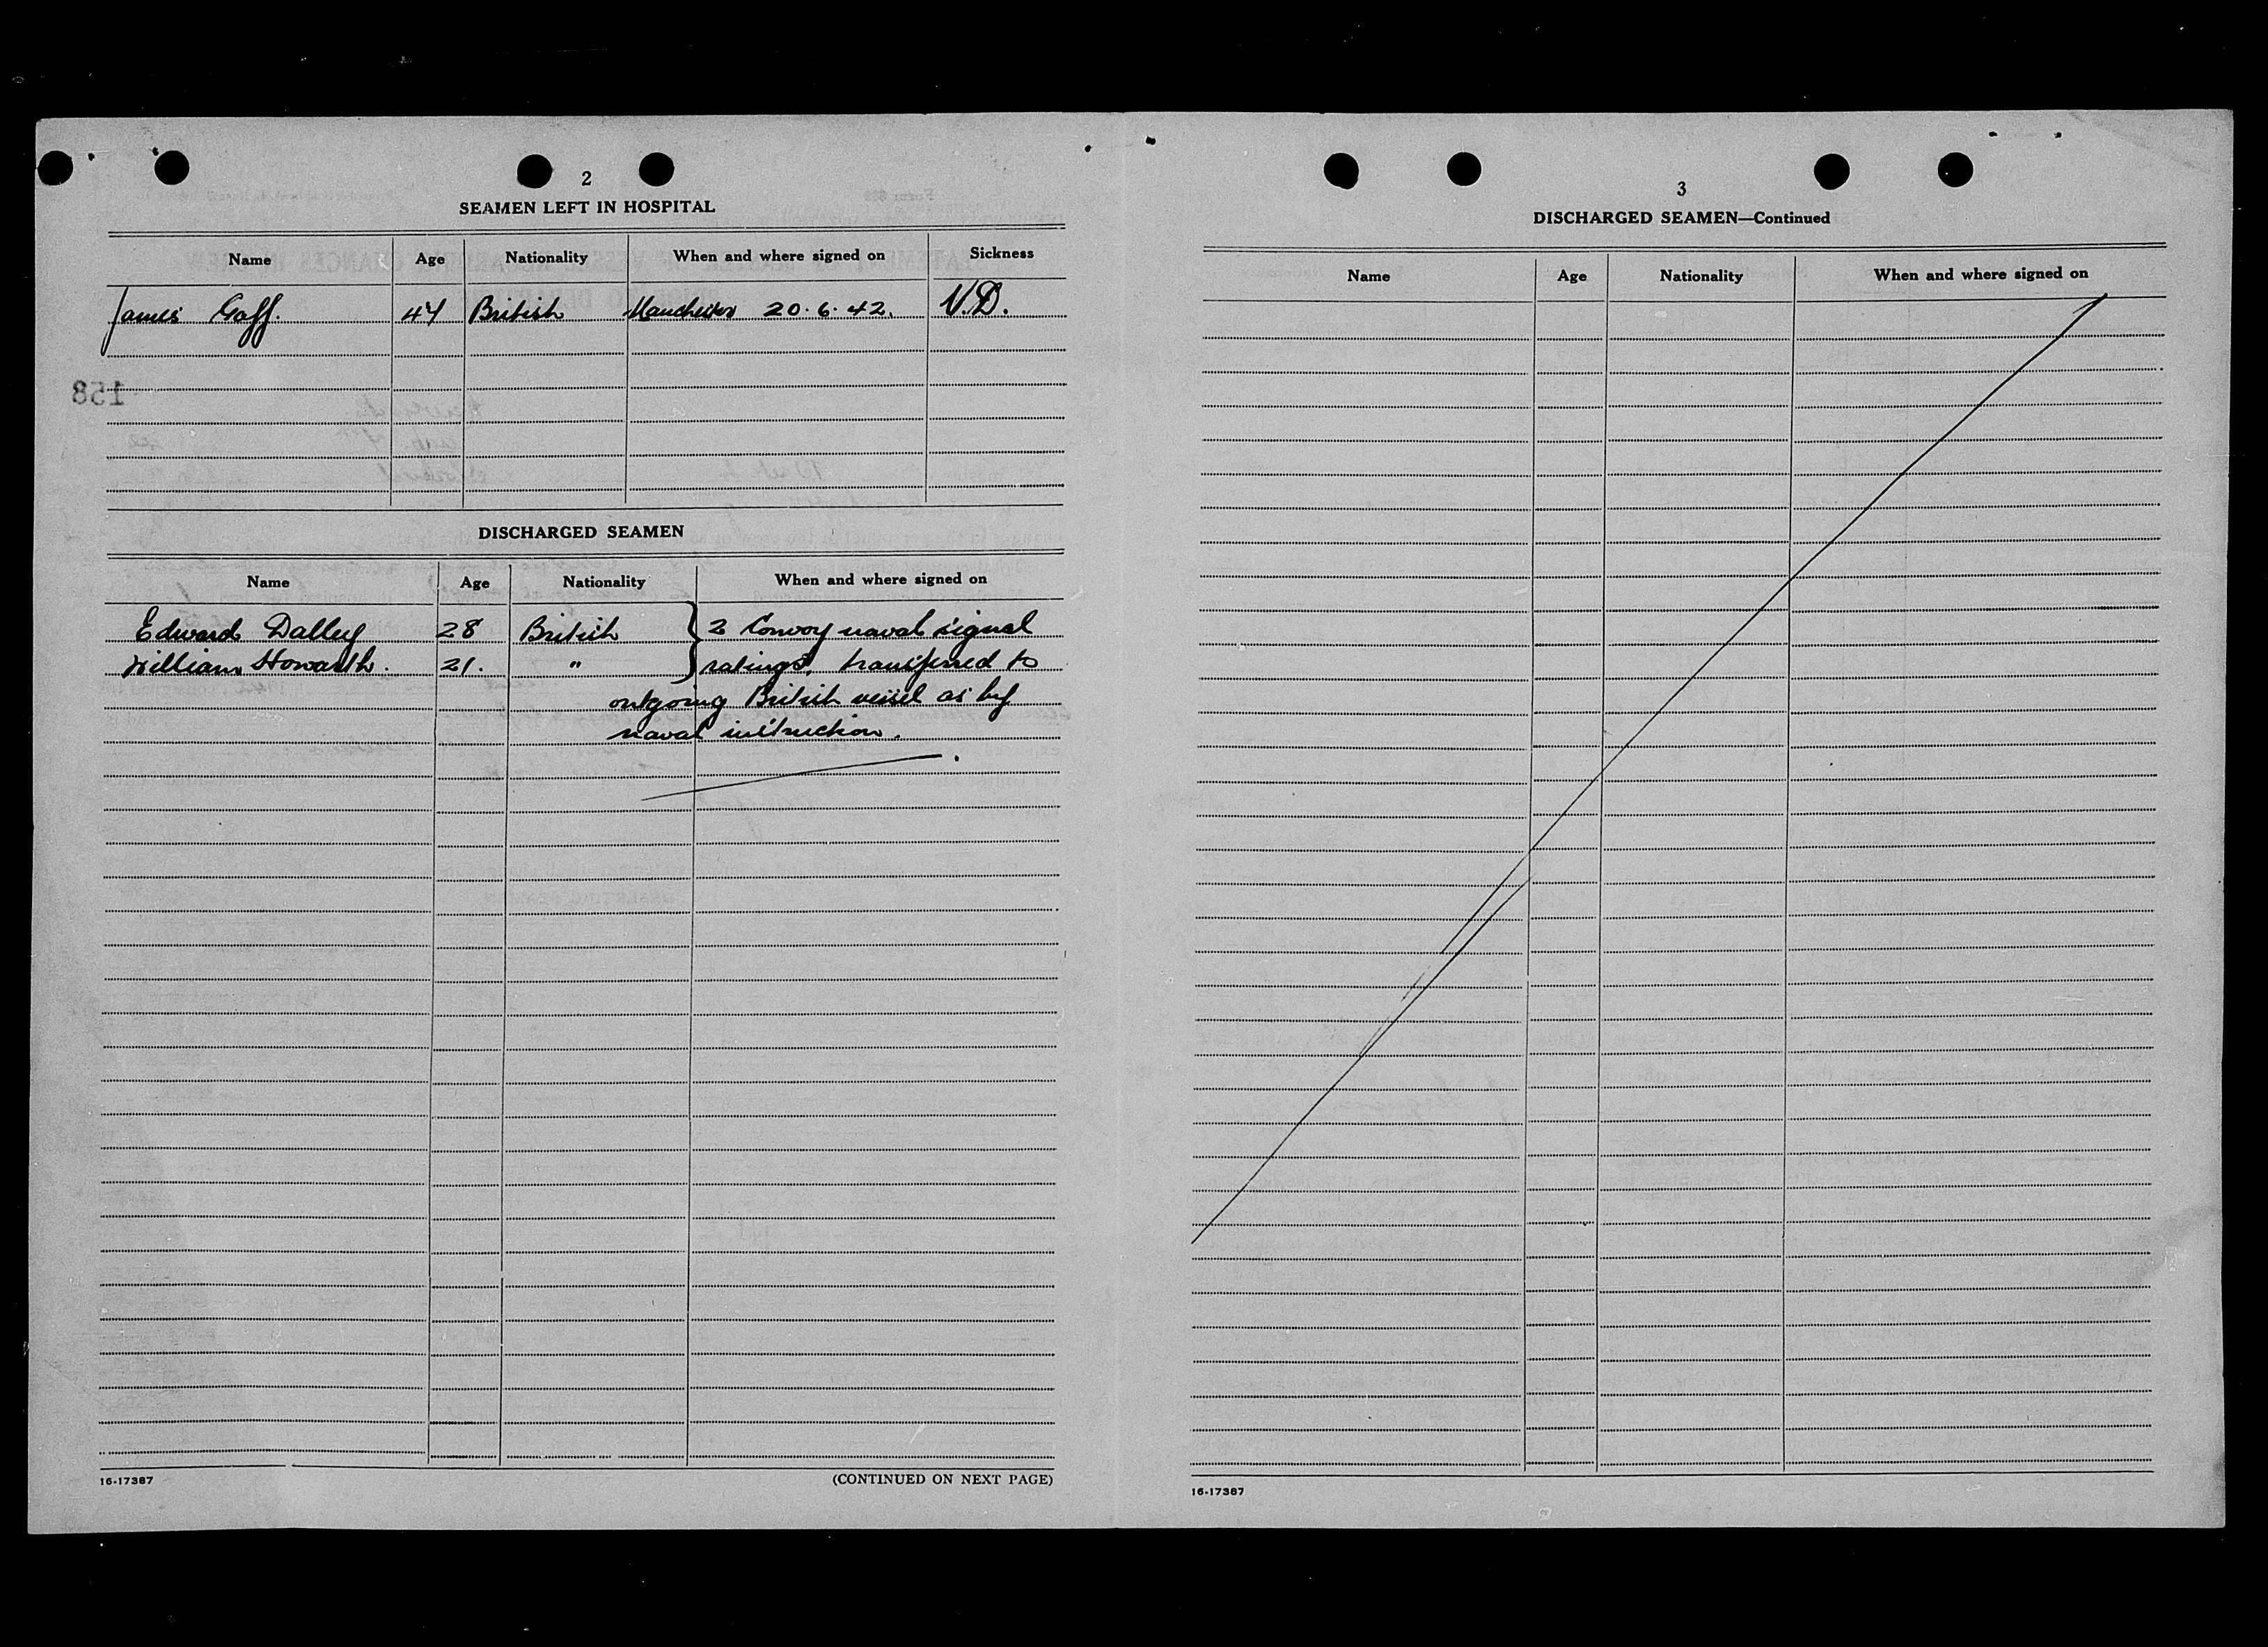 2
SEAMEN LEFT IN HOSPITAL
Name Age Nationality When and where signed on Sickness
James Gaff. 47 British Manchester 20.6.42. V.D.
158
DISCHARGED SEAMEN
Name Age Nationality When and where signed on
Edward Dalley 28 British } 2 Convoy naval signal
William Howarth. 21. " } ratings, transferred to
outgoing British vessel as by
naval instruction.
16-17387
(CONTINUED ON NEXT PAGE)
3
DISCHARGED SEAMEN—Continued
Name Age Nationality When and where signed on
16-17387